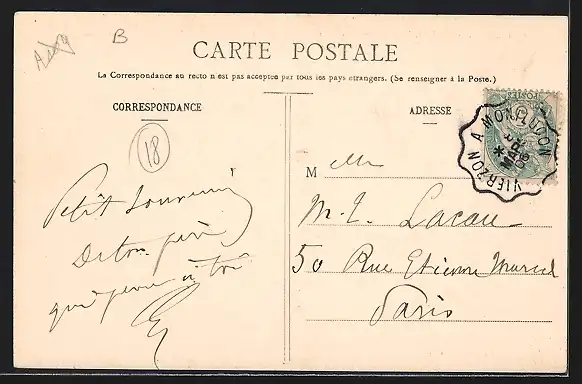 B
CARTE POSTALE
La Correspondance au recto n'est pas acceptée par tous les pays étrangers. (Se renseigner à la Poste.)
CORRESPONDANCE
ADRESSE
18
Petit souvenir
De ton père
qui pense à toi
M elle
M. L. Lacau
50 Rue Etienne Marcel
Paris
POSTES
VIERZON A MONTLUÇON
MARS